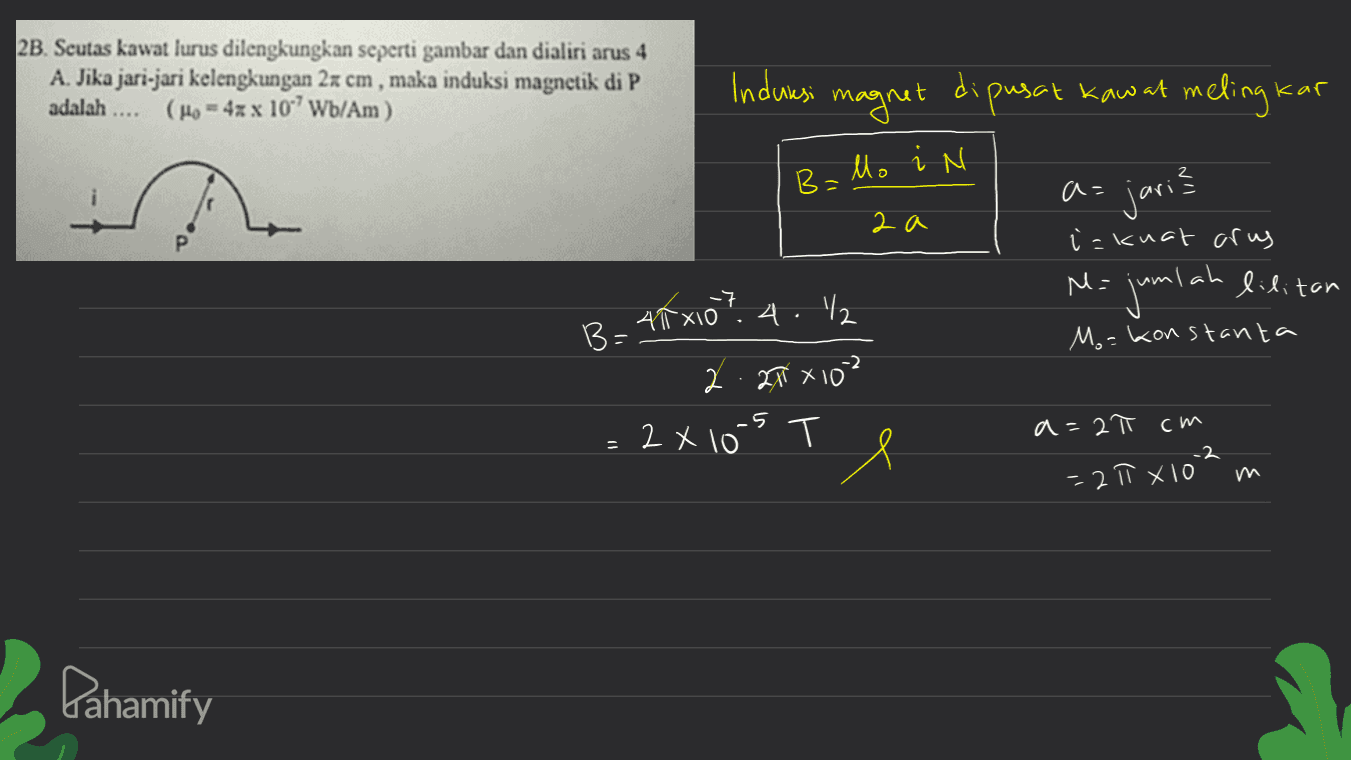 2B. Seutas kawat lurus dilengkungkan seperti gambar dan dialiri arus 4
A. Jika jari-jari kelengkungan 2π cm , maka induksi magnetik di P
adalah .... ( μ₀ = 4π x 10⁻⁷ Wb/Am )
i
r
P
Induksi magnet dipusat kawat melingkar
B = μ₀ i N
2 a
a = jari²
i = kuat arus
N = jumlah lilitan
μ₀ = konstanta
B = 4π x10⁻⁷ . 4 . 1/2
2 . 2π x 10⁻²
= 2 x 10⁻⁵ T
a = 2π cm
= 2π x10⁻² m
Pahamify